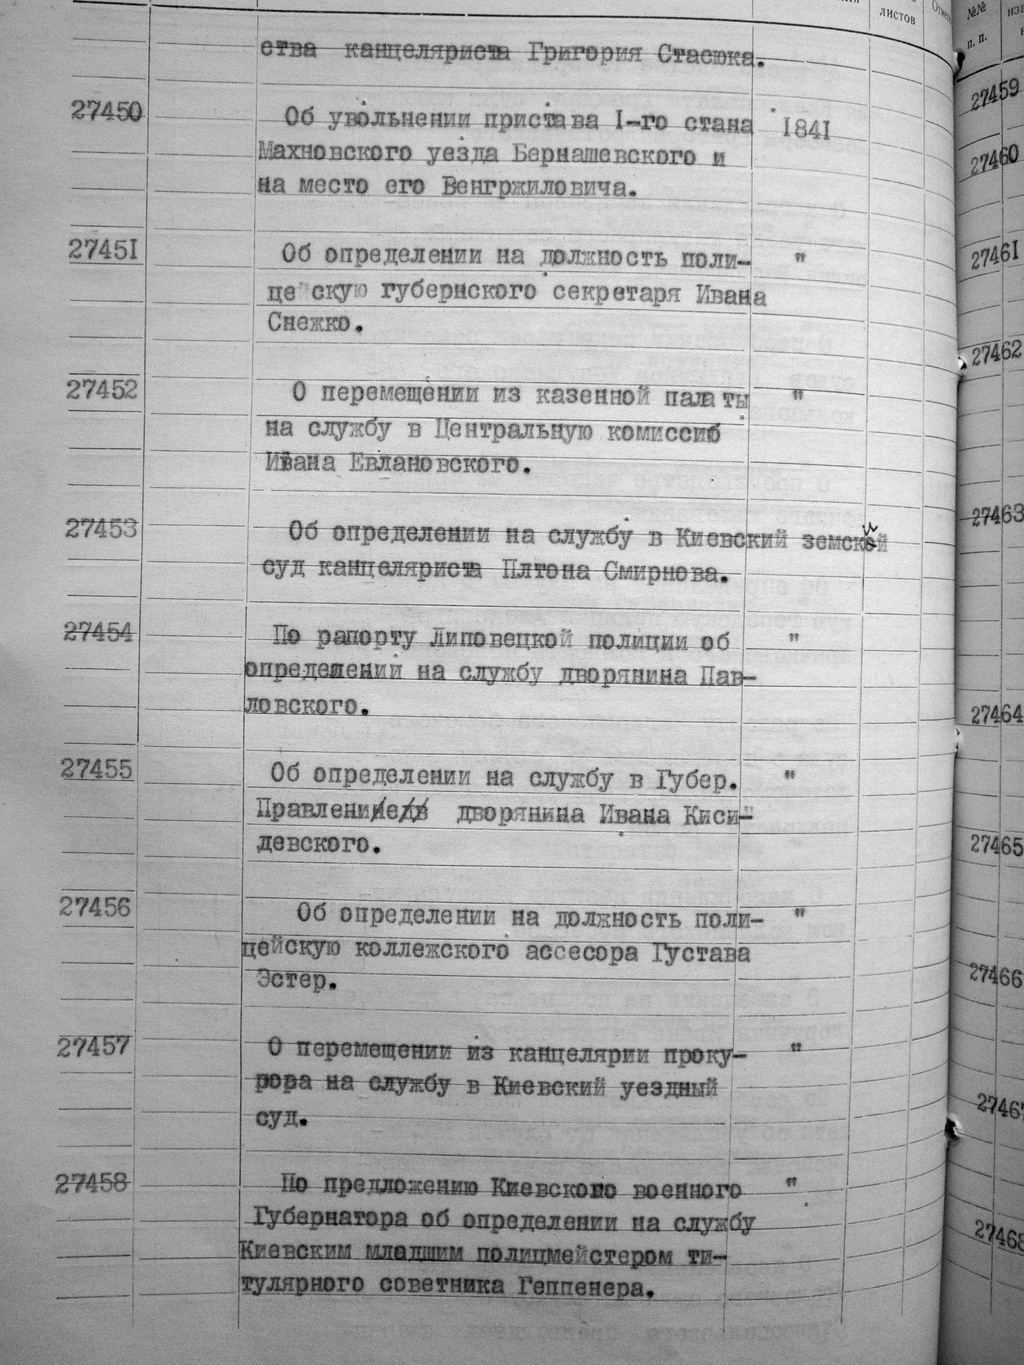 листов
№№
п. п.
ства канцеляриста Григория Стасюка.
27450 Об увольнении пристава I-го стана I84I
Махновского уезда Бернашевского и
на место его Венгржиловича.
2745I Об определении на должность поли- "
цейскую губернского секретаря Ивана
Снежко.
27452 О перемещении из казенной палаты "
на службу в Центральную комиссиб
Ивана Евлановского.
27453 Об определении на службу в Киевский земский
суд канцеляриста Плтона Смирнова.
27454 По рапорту Липовецкой полиции об "
определений на службу дворянина Пав-
ловского.
27455 Об определении на службу в Губер. "
Правление дворянина Ивана Киси-
девского.
27456 Об определении на должность поли- "
цейскую коллежского ассесора Густава
Эстер.
27457 О перемещении из канцелярии проку- "
рора на службу в Киевский уездный
суд.
27458 По предложению Киевского военного "
Губернатора об определении на службу
Киевским младшим полицмейстером ти-
тулярного советника Геппенера.
27459
27460
2746I
27462
27463
27464
27465
27466
27467
27468